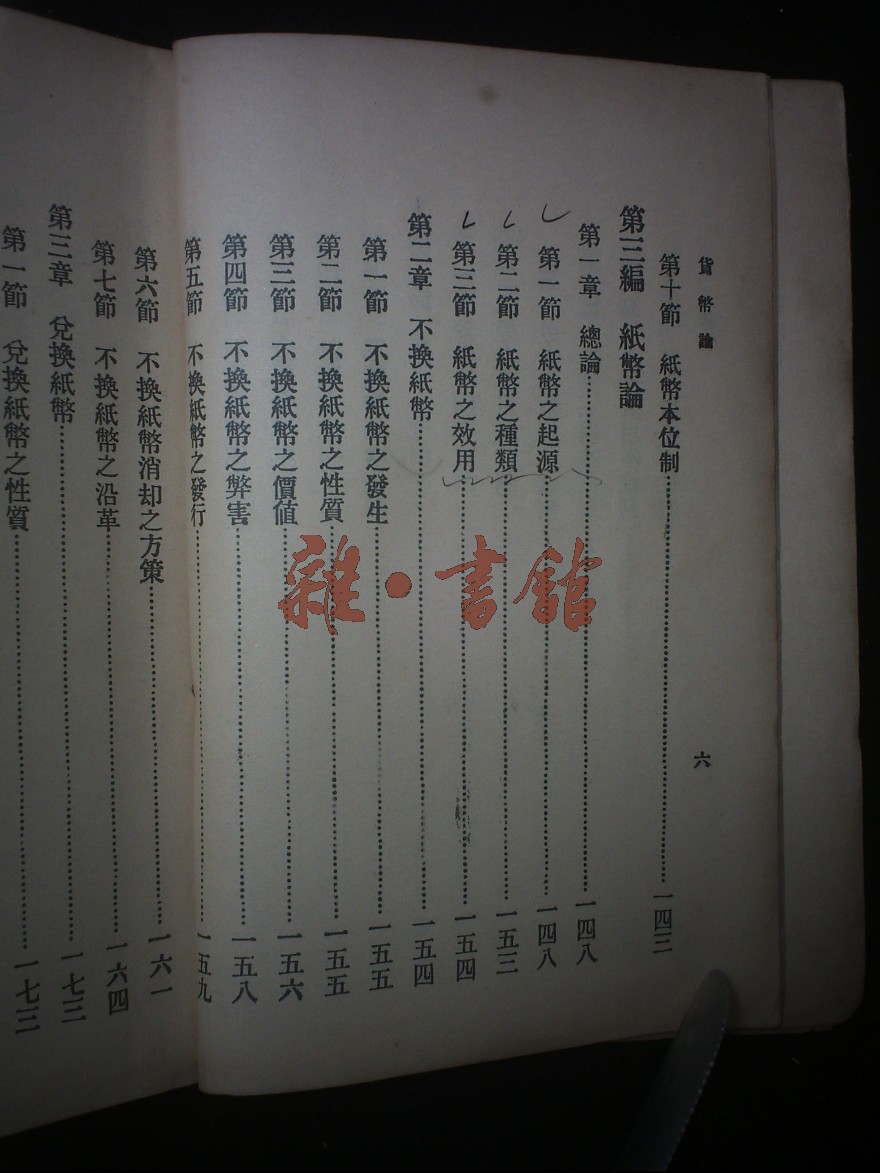 貨幣論
六
第十節 紙幣本位制……一四三
第三編 紙幣論
第一章 總論……一四八
第一節 紙幣之起源……一四八
第二節 紙幣之種類……一五三
第三節 紙幣之效用……一五四
第二章 不換紙幣……一五四
第一節 不換紙幣之發生……一五五
第二節 不換紙幣之性質……一五五
第三節 不換紙幣之價値……一五六
第四節 不換紙幣之弊害……一五八
第五節 不換紙幣之發行……一五九
第六節 不換紙幣消却之方策……一六一
第七節 不換紙幣之沿革……一六四
第三章 兌換紙幣……一七三
第一節 兌換紙幣之性質……一七三
雜·書館